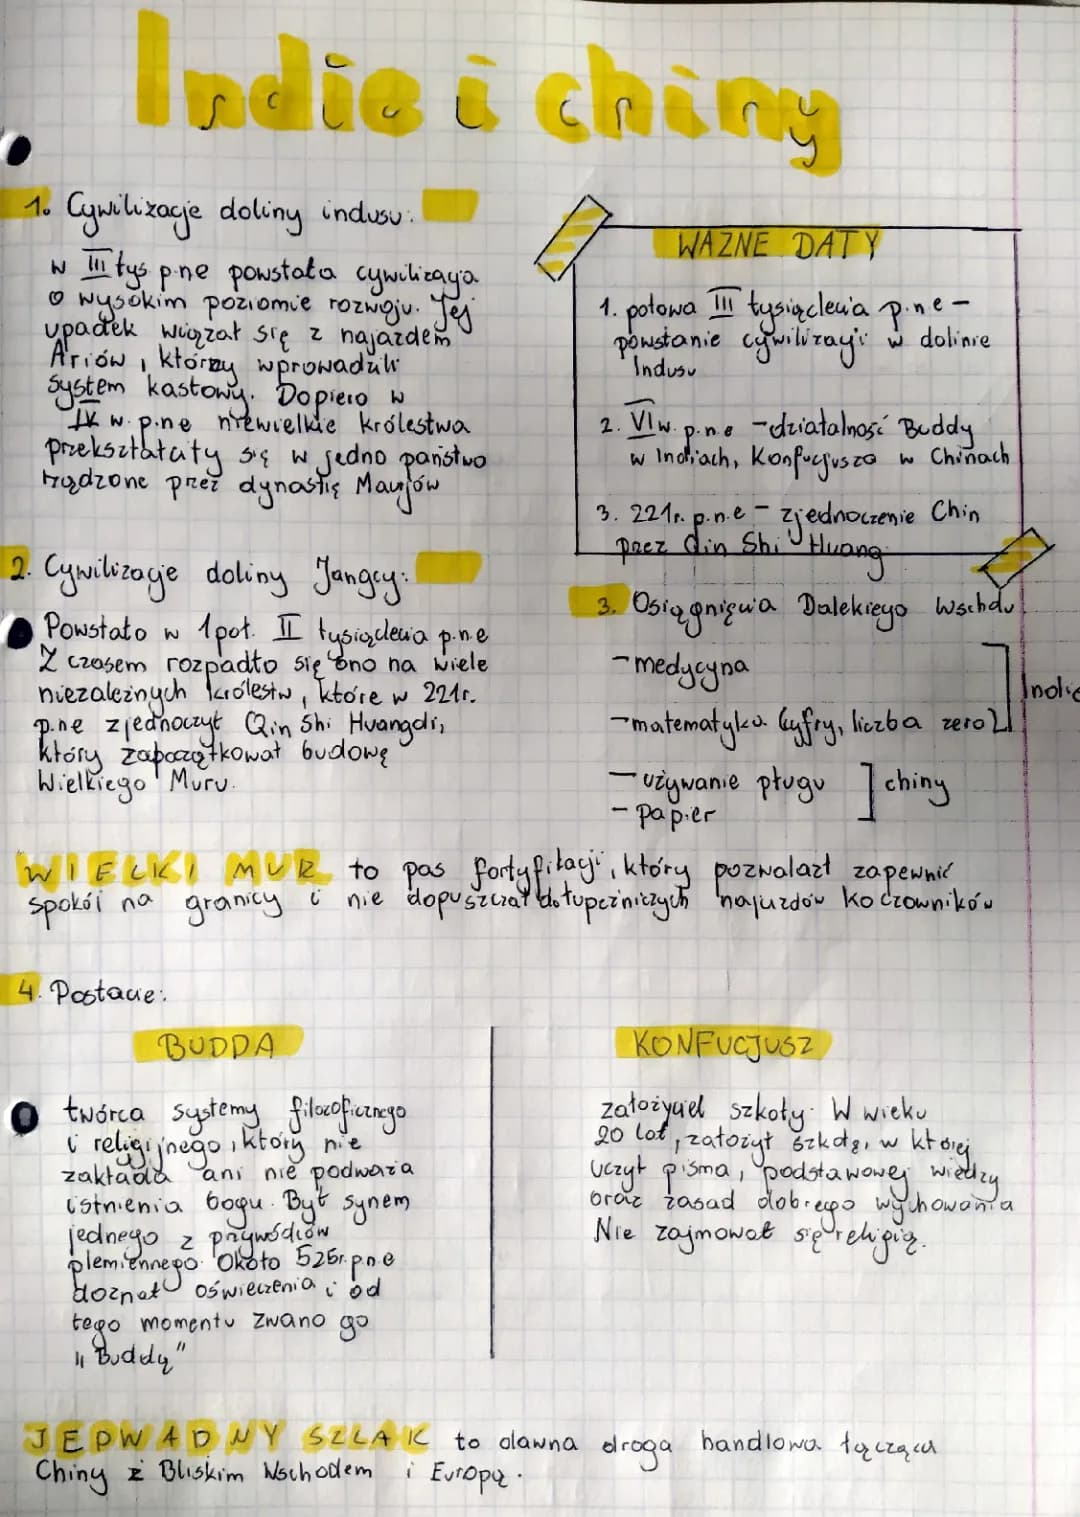 Indie i chiny
1. Cywilizacje doliny indusu:
w III tys p.ne powstała cywilizacja
o wysokim poziomie rozwoju. Jej
upadek wiązał się z najazdem
Ariów, którzy wprowadzili
system kastowy. Dopiero w
IV w. p.ne niewielkie królestwa
przekształciły się w jedno państwo
rządzone prez dynastię Maurjów
2. Cywilizacje doliny Jangcy:
Powstało w 1 poł. II tysiąclecia p.n.e
Z czasem rozpadło się ono na wiele
niezależnych królestw, które w 221r.
p.ne zjednoczył Qin Shi Huangdi,
który zapoczątkował budowę
Wielkiego Muru.
WAŻNE DATY
1. połowa III tysiąclecia p.n.e -
powstanie cywilizacji w dolinie
Indusu
2. VI w. p.n.e - działalność Buddy
w Indiach, Konfucjusza w Chinach
3. 221r. p.n.e - zjednoczenie Chin
przez Qin Shi Huang
3. Osiągnięcia Dalekiego Wschdu
- medycyna
Indie
- matematyka (cyfry, liczba zero)
- używanie pługu
chiny
- papier
WIELKI MUR to pas fortyfikacji, który pozwalazł zapewnić
spokój na granicy i nie dopuszczał do łupeżniczych najazdów koczowników
4. Postacie:
BUDDA
twórca systemy filozoficznego
i religijnego, który nie
zakłada ani nie podważa
istnienia bogu. Był synem
jednego z przywódców
plemiennego. Około 526r. p.n.e
doznał oświeczenia i od
tego momentu zwano go
"Buddą"
KONFUCJUSZ
założyciel szkoły. W wieku
20 lat, założył szkołę, w której
uczył pisma, podstawowej wiedzy
oraz zasad dobrego wychowania
Nie zajmował się religią.
JEDWADNY SZLAK to dawna droga handlowa łącząca
Chiny z Bliskim Wschodem i Europą.